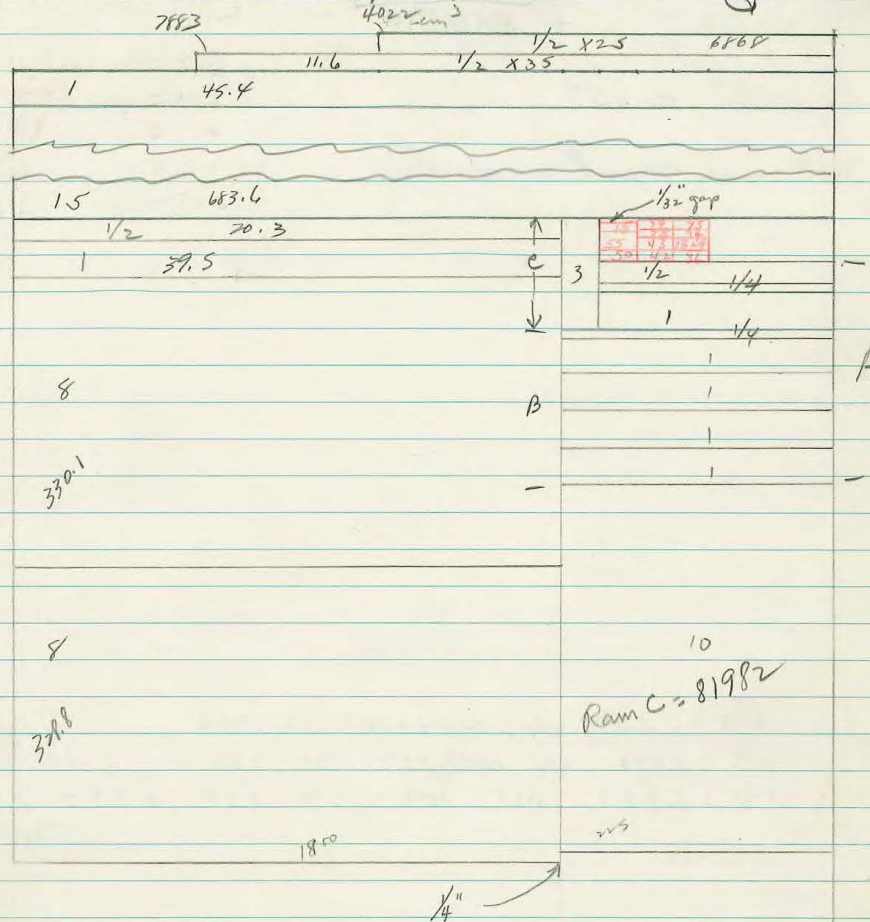 7883
4022 cm³
1/2 X25 6868
11.6 1/2 X35
1 45.4
15 683.6
1/32" gap
1/2 20.3
1 39.5
C
3
55 43
50 42 36
1/2 1/4
1 1/4
1
8
B
1
1
1
330.1
8
10
Ram C = 81982
338.8
225
18
1/4"